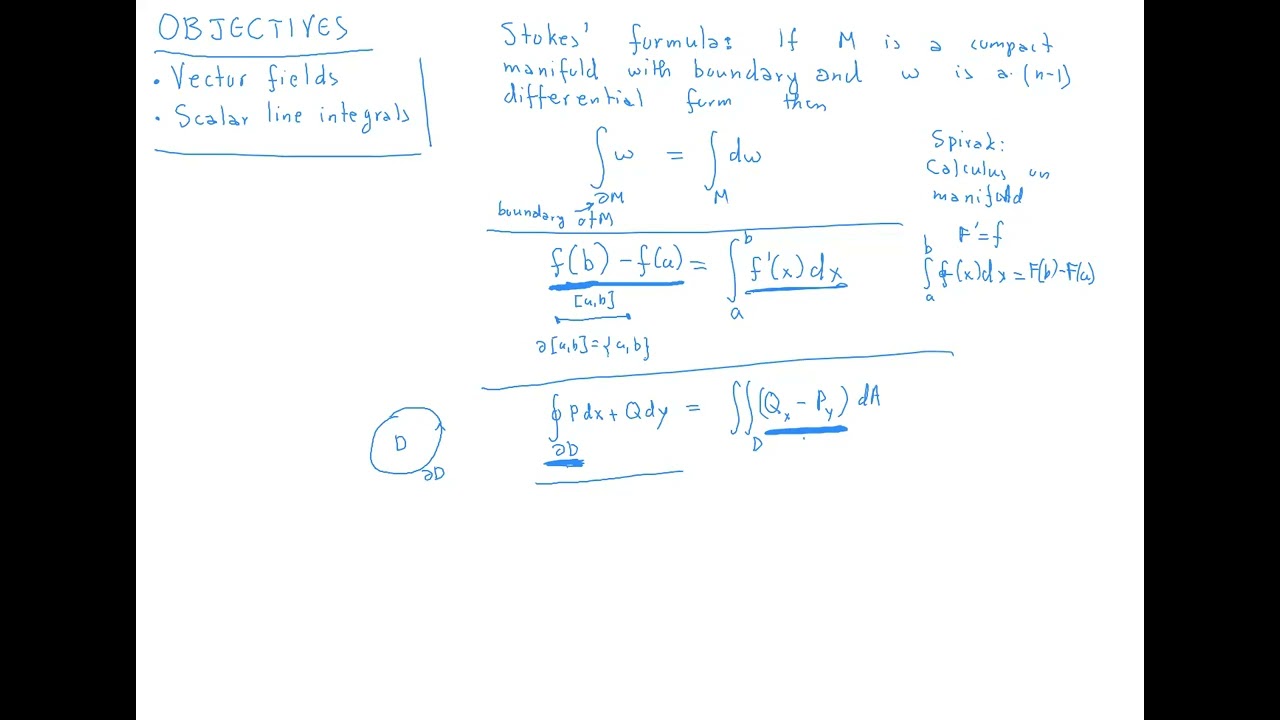 OBJECTIVES
• Vector fields
• Scalar line integrals
Stokes' formula: If M is a compact
manifold with boundary and ω is a (n-1)
differential form then
∫_∂M ω = ∫_M dω
boundary of M
Spivak:
Calculus on
manifold
F' = f
∫_a^b f(x)dx = F(b)-F(a)
f(b) - f(a) = ∫_a^b f'(x)dx
[a,b]
∂[a,b]={a,b}
∮_∂D Pdx + Qdy = ∬_D (Q_x - P_y) dA
D
∂D